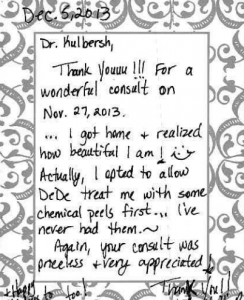 Dec. 5, 2013
Dr. Kulbersh,
Thank Youuu!!! For a
wonderful consult on
Nov. 27, 2013.
... I got home + realized
how beautiful I am!
Actually, I opted to allow
DeDe treat me with some
chemical peels first... I've
never had them.~
Again, your consult was
priceless + very appreciated!
Thank You!